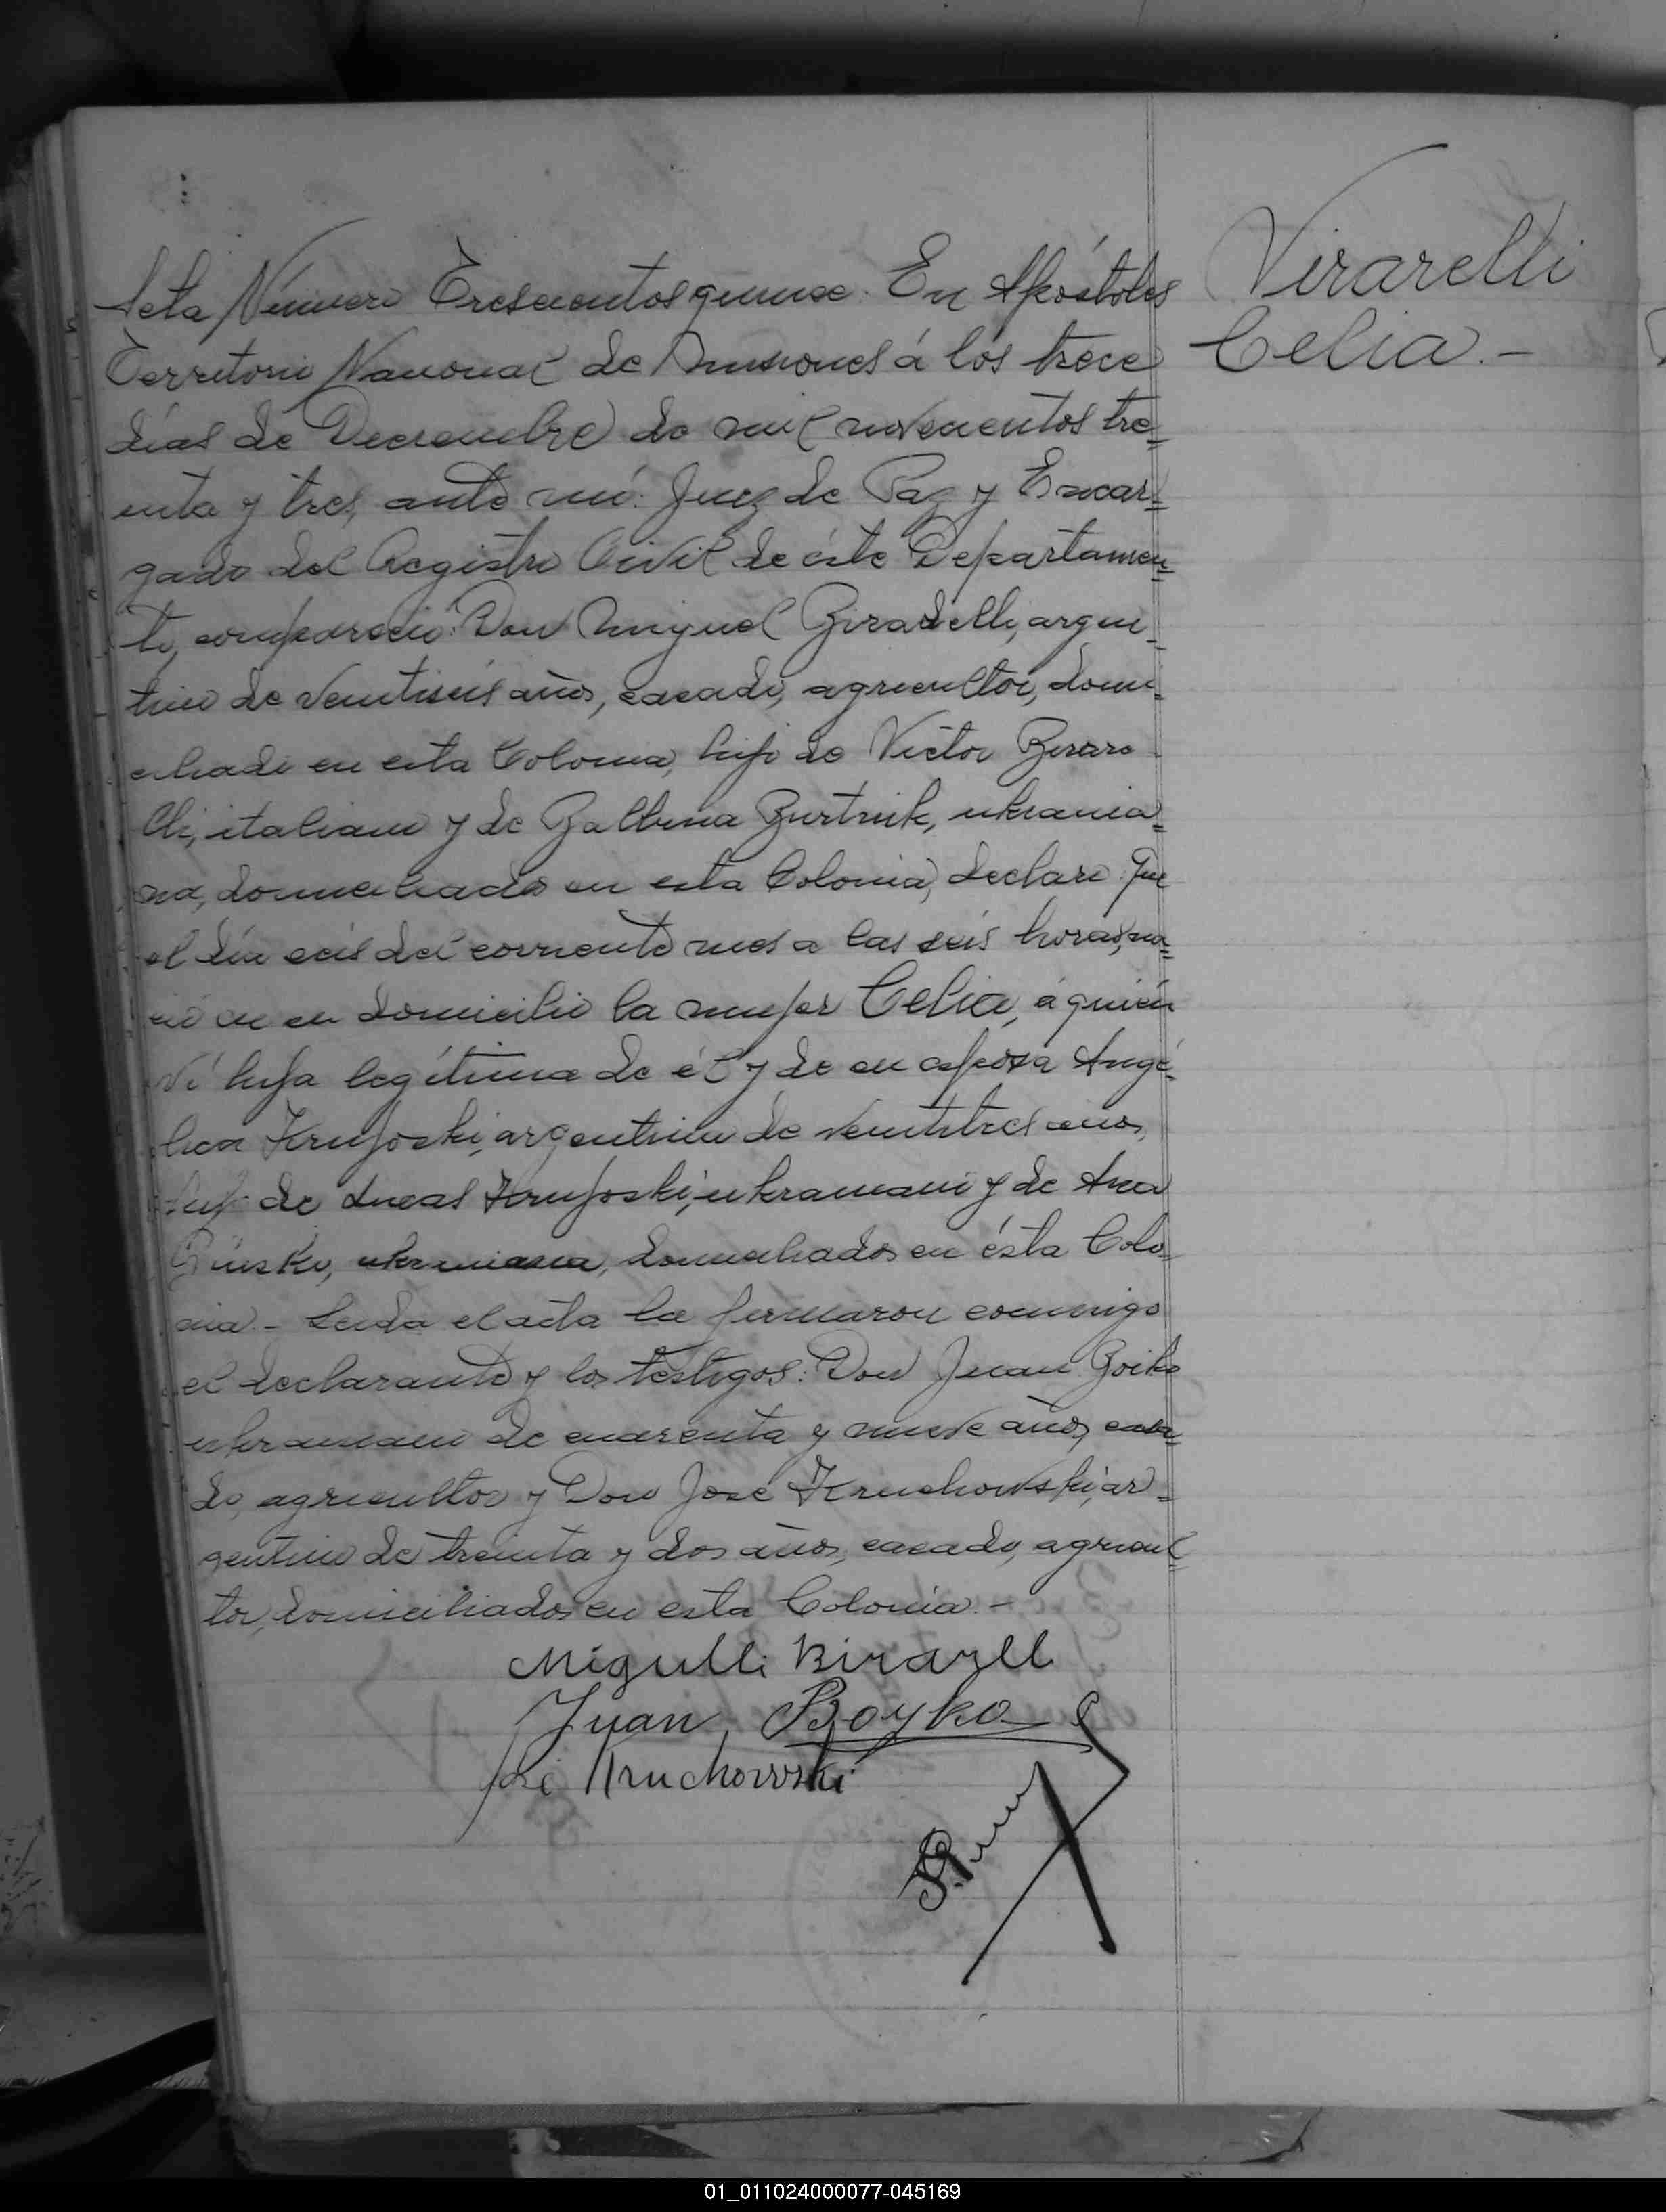 Acta Número Trescientos quince. En Apóstoles
Territorio Nacional de Misiones á los trece
días de Diciembre de mil novecientos tre=
inta y tres, ante mí: Juez de Paz y Encar=
gado del Registro Civil de éste Departamen=
to, compareció: Don Miguel argen=
tino de veintiseis años, casado, agricultor, domi=
ciliado en esta Colonia, hijo de Victor
italiano y de Balbina Burtnik, ukrania=
na, domiciliados en esta Colonia, declaro: Que
el día seis del corriente mes a las seis horas, na=
ció en su domicilio la mujer Celia, á quién
ví hija legítima de él y de su esposa Angé=
lica Krujoski, argentina de veintitres años,
hija de Lucas Krujoski, ukraniano y de Ana
ukraniana, domiciliados en ésta Colo=
nia.- Leida el acta la firmaron conmigo
el declarante y los testigos: Don Juan Boiko
ukraniano de cuarenta y nueve años, casa=
do, agricultor y Don José Kruchowski, ar=
gentino de treinta y dos años, casado, agricul=
tor, domiciliados en esta Colonia.-
Virarelli
Celia.-
Migulli Birarll
Juan Boyko
José Kruchowski
01_011024000077-045169